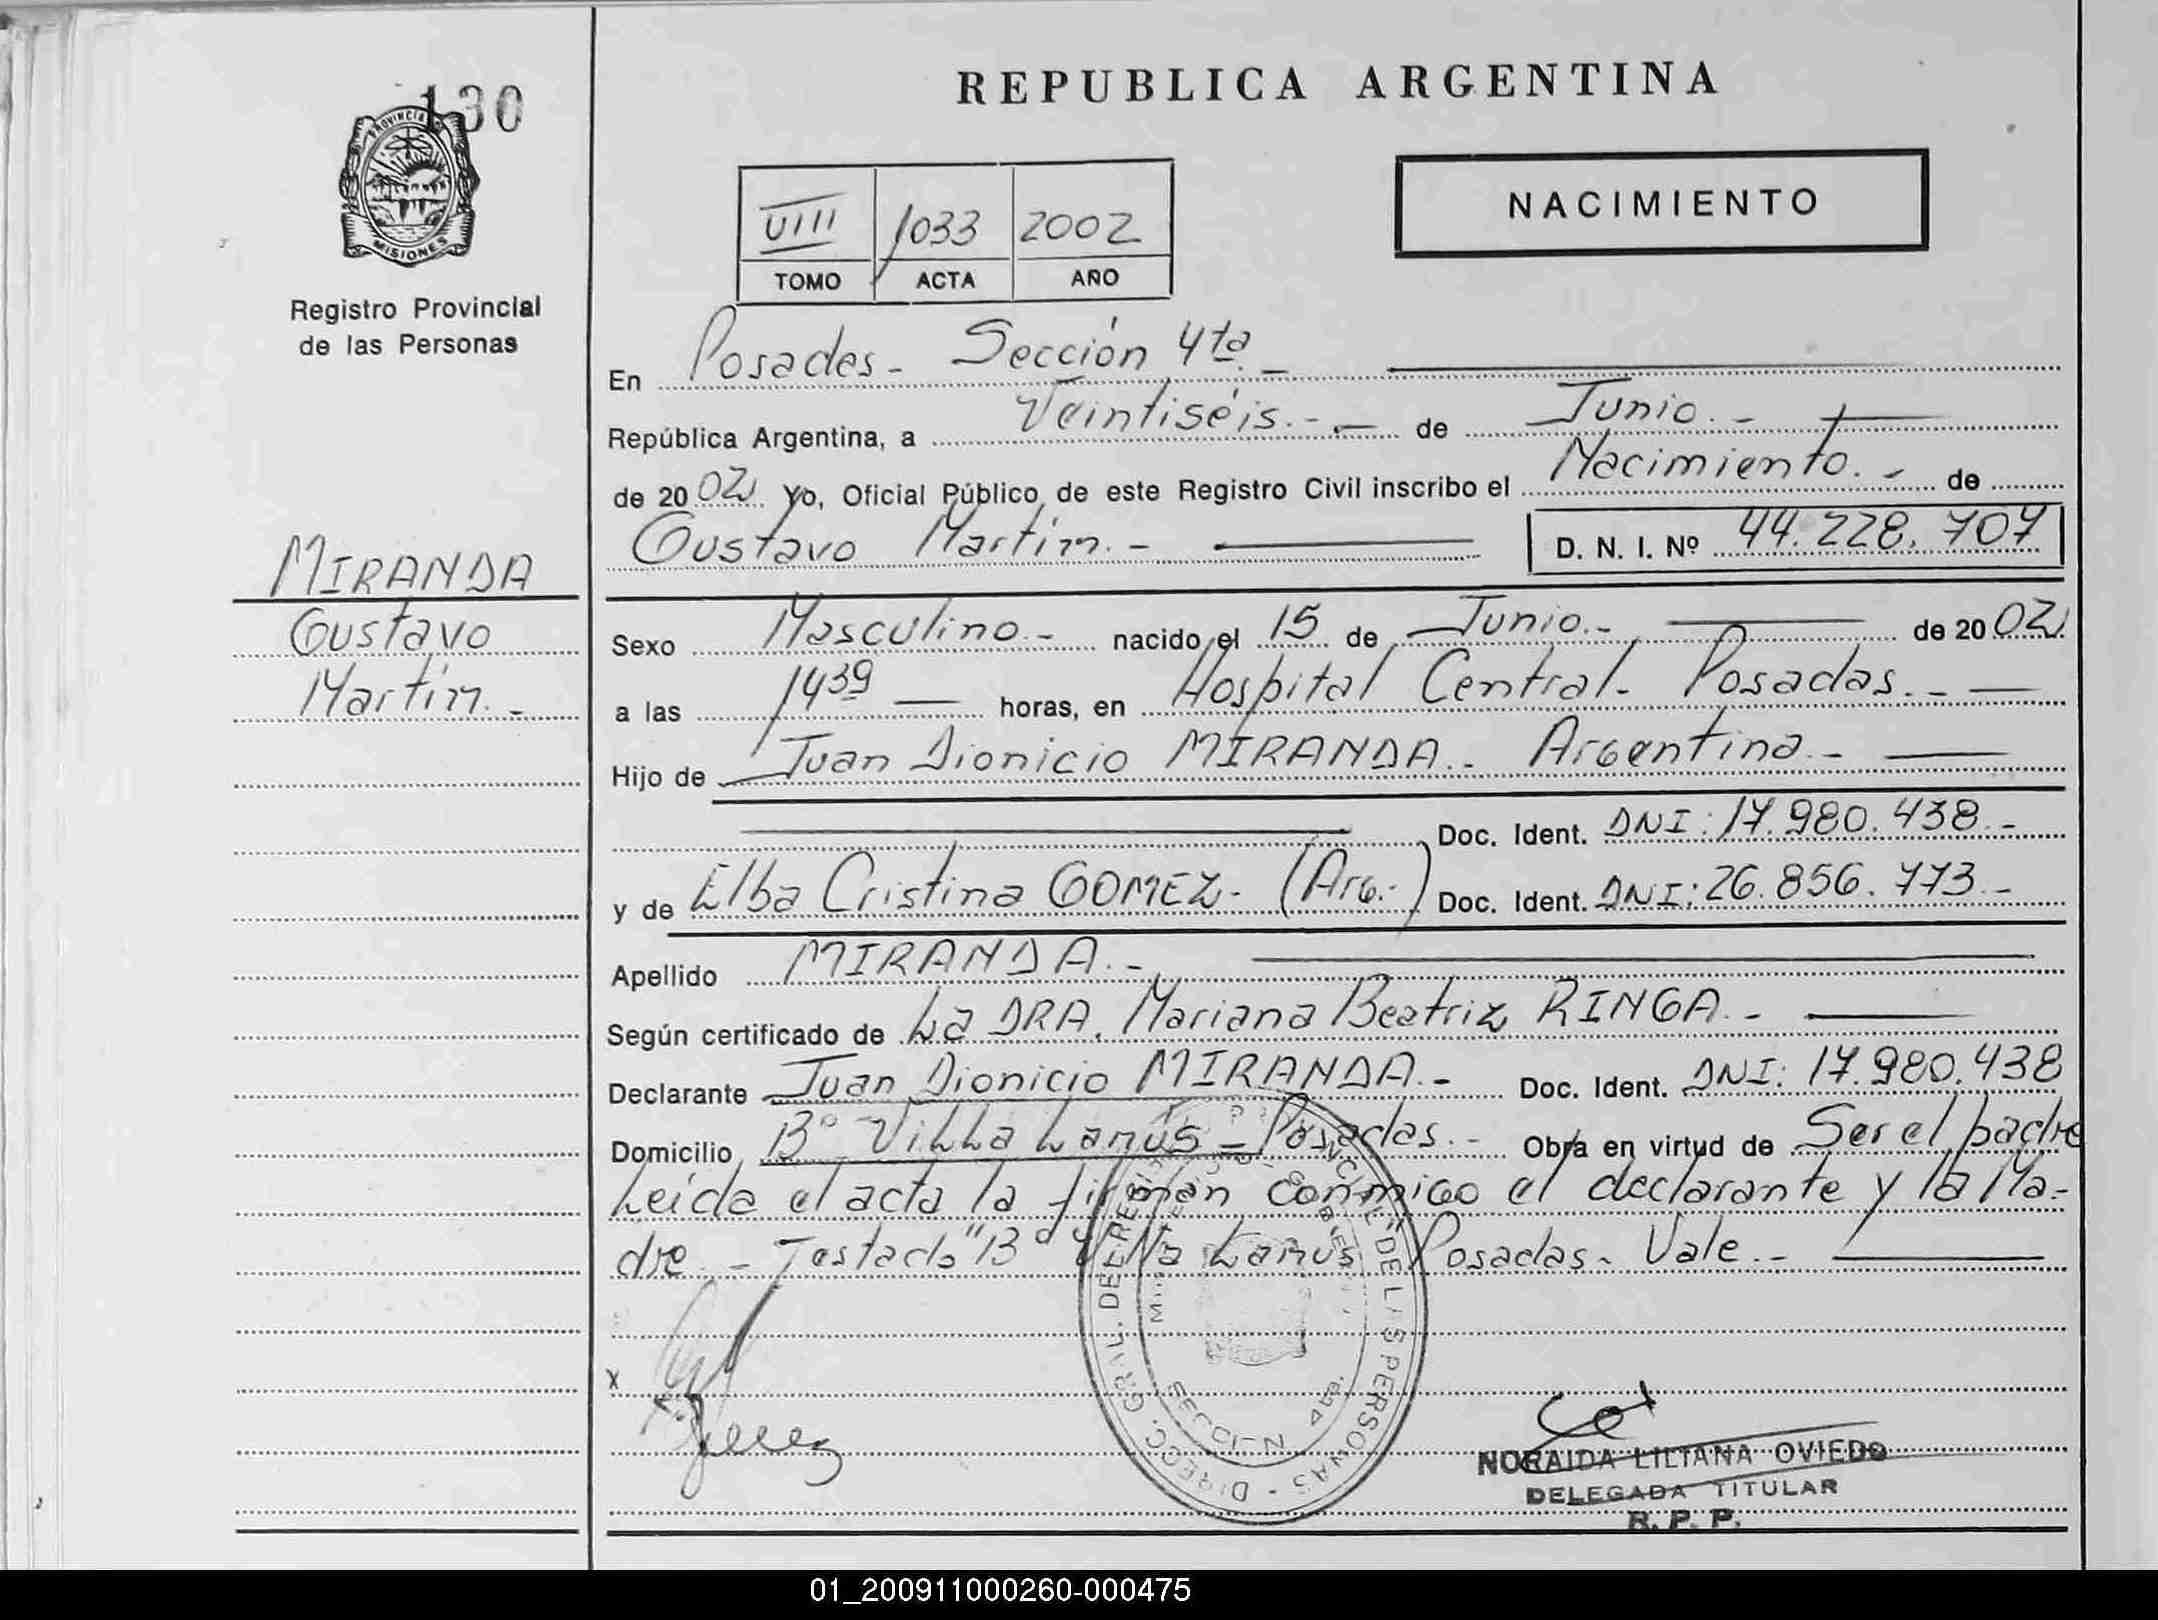 130
PROVINCIA
MISIONES
Registro Provincial
de las Personas
MIRANDA
Gustavo
Martín.-
REPUBLICA ARGENTINA
NACIMIENTO
VIII 1033 2002
TOMO ACTA AÑO
En Posadas - Sección 4ta. -
República Argentina, a Veintiséis.- de Junio.-
de 2002. Yo, Oficial Público de este Registro Civil inscribo el Nacimiento.- de
Gustavo Martín.- D. N. I. Nº 44.228.707
Sexo Masculino.- nacido el 15 de Junio.- de 2002.
a las 1439 horas, en Hospital Central - Posadas.-
Hijo de Juan Dionicio MIRANDA.- Argentina.-
Doc. Ident. DNI: 17.980.438.-
y de Elba Cristina GOMEZ.- (Arg.-) Doc. Ident. DNI: 26.856.773.-
Apellido MIRANDA.-
Según certificado de La DRA. Mariana Beatriz RINGA.-
Declarante Juan Dionicio MIRANDA.- Doc. Ident. DNI: 17.980.438
Domicilio Bº Villa Lanús - Posadas.- Obra en virtud de Ser el padre
Leída el acta la firman conmigo el declarante y la Ma-
dre.- Testado "Bº Villa Lanus Posadas - Vale.-
DIRECC. GRAL. DEL REGISTRO PROVINCIAL DE LAS PERSONAS
SECCION 4ta.
X
NORAIDA LILIANA OVIEDO
DELEGADA TITULAR
R. P. P.
01_200911000260-000475